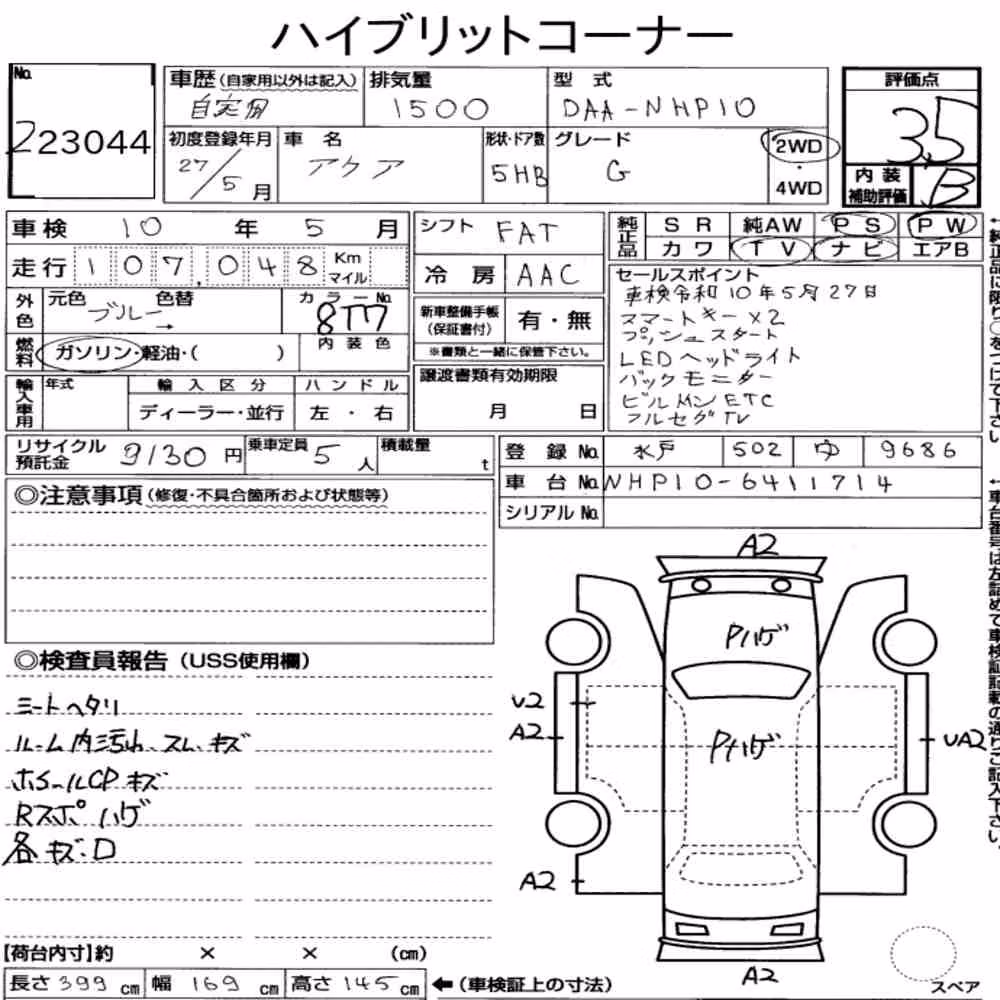 ハイブリットコーナー
No. 223044
車歴(自家用以外は記入) 自家用
排気量 1500
型式 DAA-NHP10
評価点 3.5
初度登録年月 27/5月
車名 アクア
形状・ドア数 5HB
グレード G
2WD・4WD
内装補助評価 B
車検 10年5月
シフト FAT
純正品 SR 純AW PS PW
カワ TV ナビ エアB
走行 107,048 Km マイル
冷房 AAC
セールスポイント
車検令和10年5月27日
スマートキー×2
プッシュスタート
LEDヘッドライト
バックモニター
ビルトインETC
フルセグTV
外色 元色 ブルー→ 色替
カラーNo. 8T7
新車整備手帳(保証書付) 有・無
※書類と一緒に保管下さい。
燃料 ガソリン・軽油・( )
内装色
輸入車用 年式 輸入区分 ハンドル
ディーラー・並行 左・右
譲渡書類有効期限
月 日
リサイクル預託金 9130円
乗車定員 5人
積載量 t
登録No. 水戸 502 ゆ 9686
車台No. NHP10-6411714
シリアルNo.
◎注意事項(修復・不具合箇所および状態等)
◎検査員報告(USS使用欄)
シートヘタリ
ルーム内汚れ、スレ、キズ
ホイールCPキズ
Rスポハゲ
各キズ:D
A2
Pハゲ
U2
A2
Pハゲ
UA2
A2
A2
スペア
【荷台内寸】約 × × (cm)
長さ399cm 幅169cm 高さ145cm
←(車検証上の寸法)
←純正品に限り○をつけて下さい。
←車台番号は左詰めで車検証記載の通りご記入下さい。